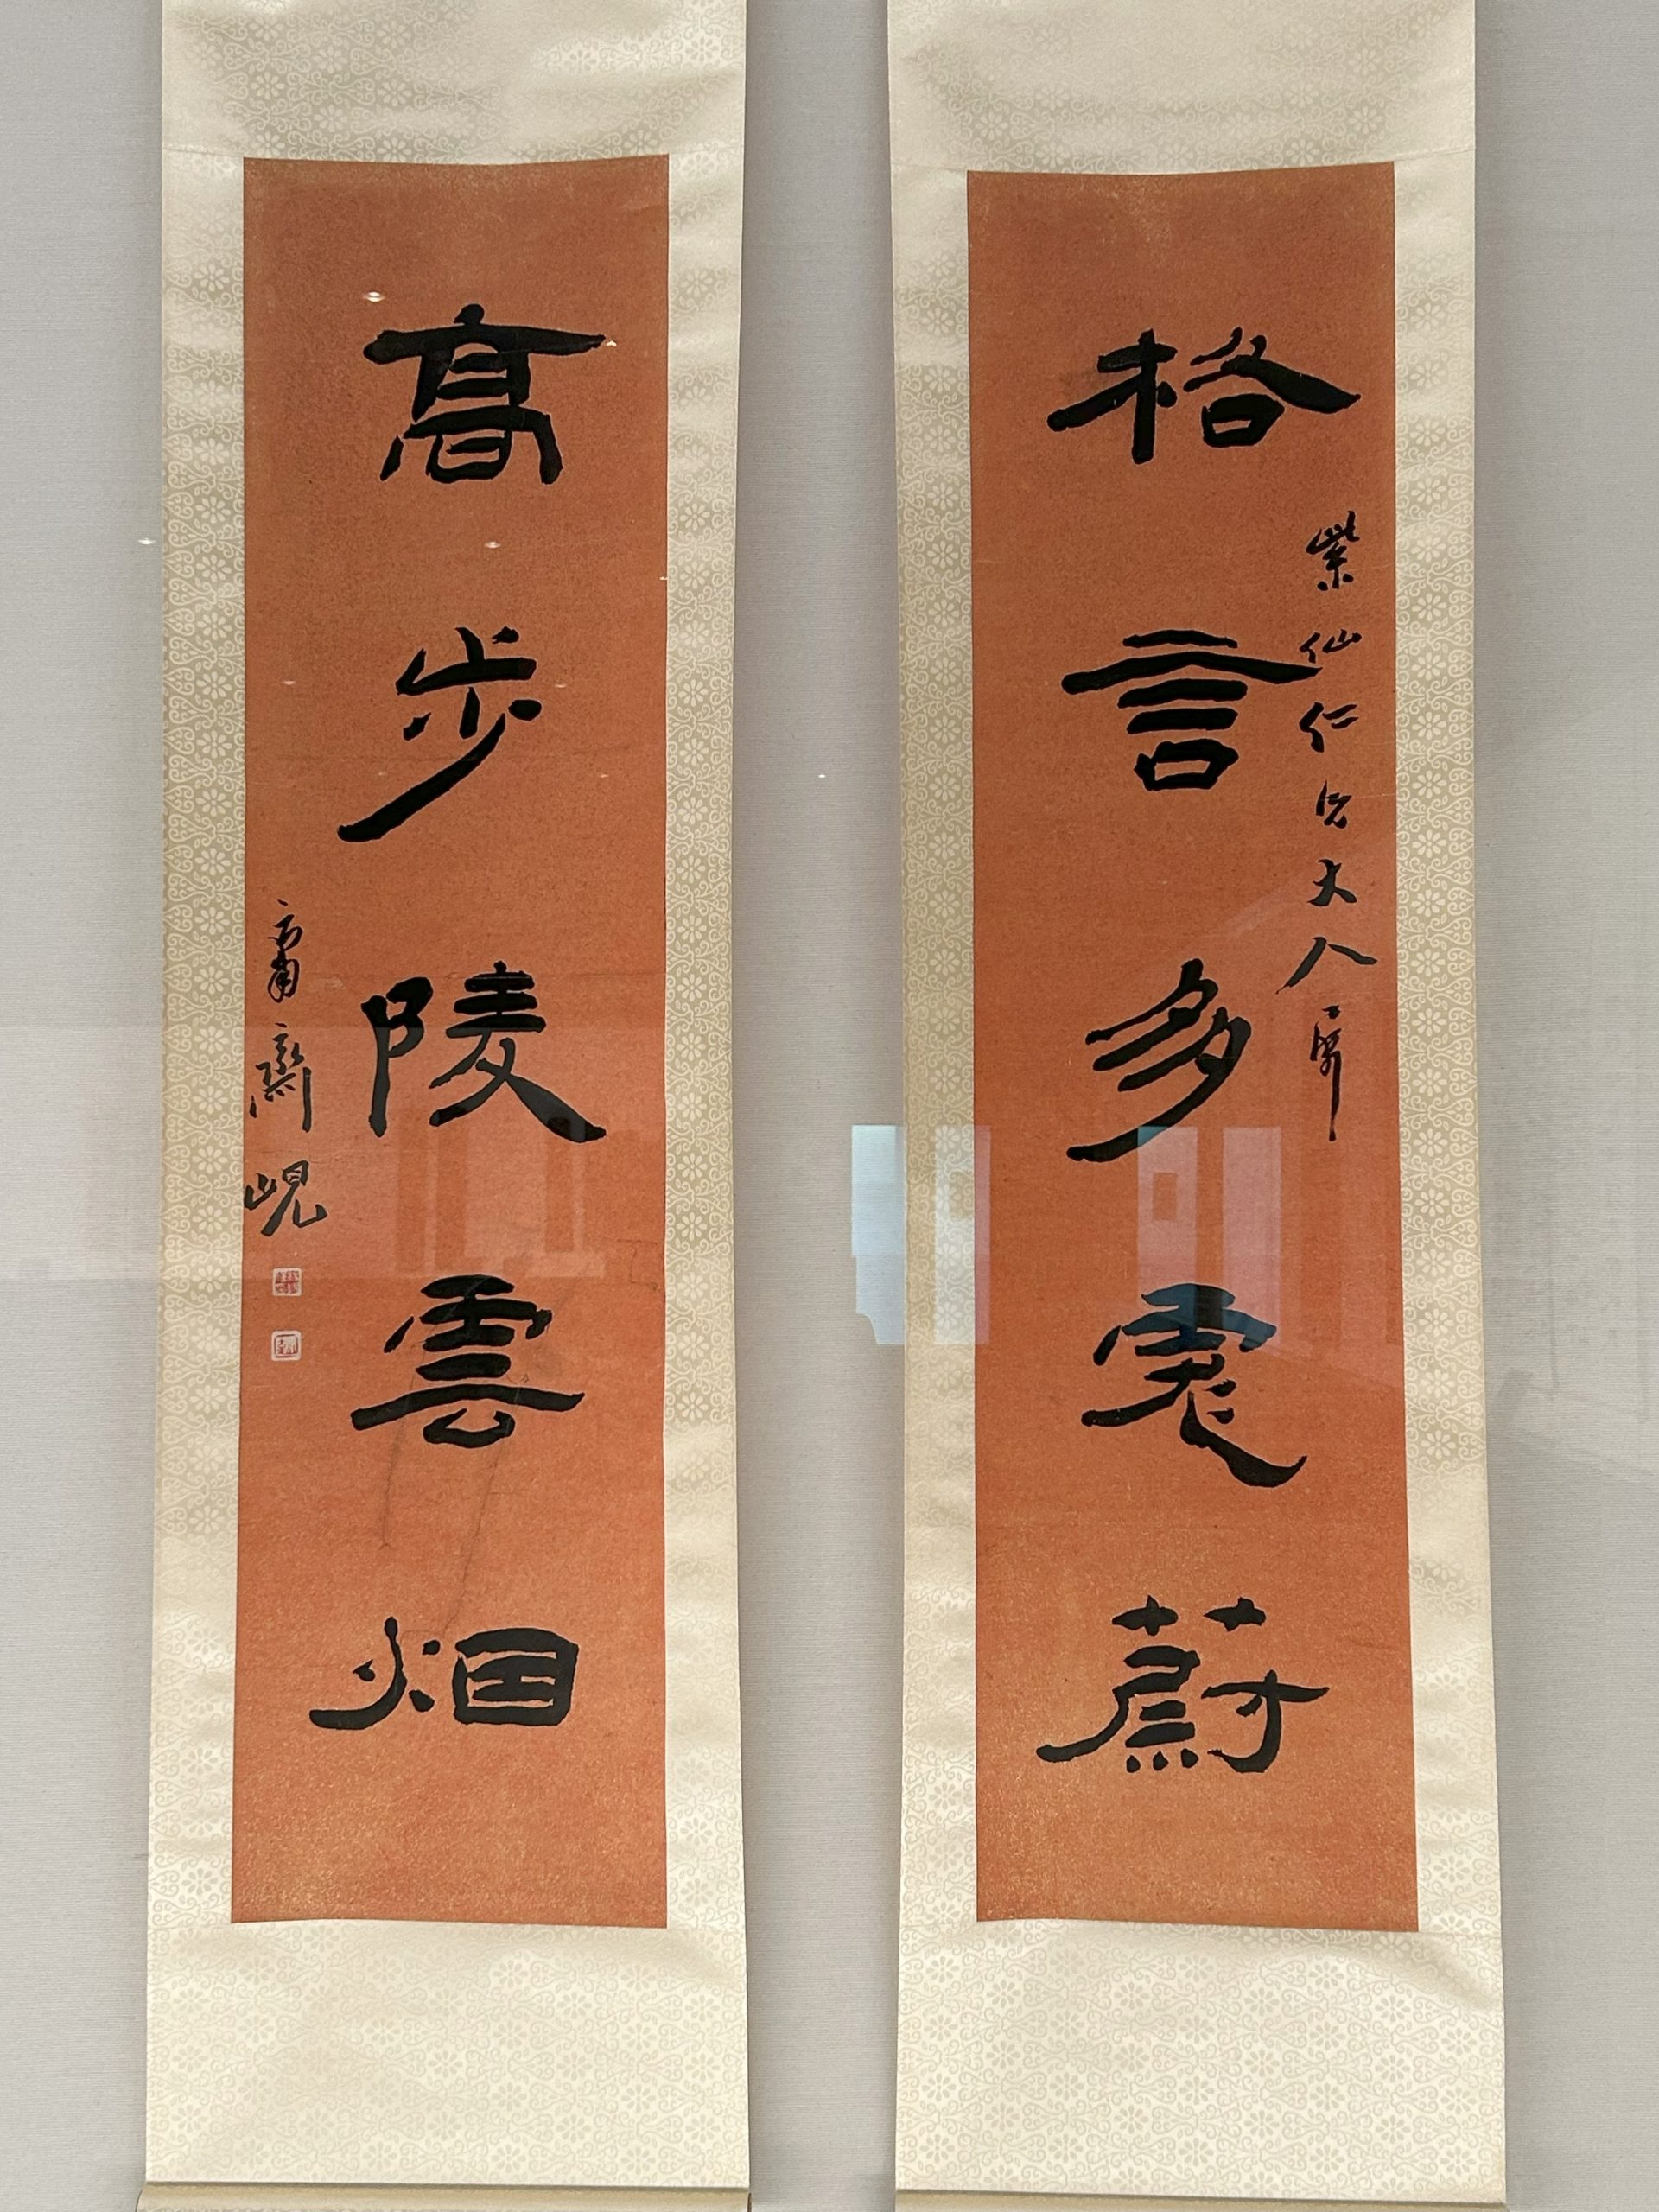 格言多彪蔚
紫仙仁兄大人
高步陵雲烟
庸齋峴